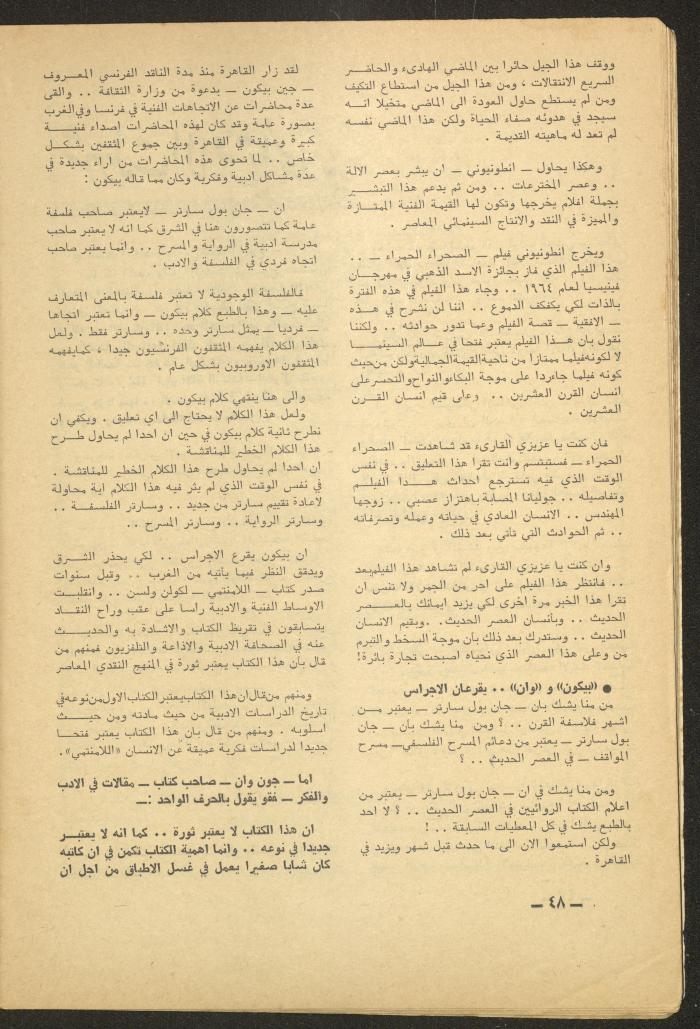 ووقف هذا الجيل حائرا بين الماضي الهادىء والحاضر
السريع الانتقالات ، ومن هذا الجيل من استطاع التكيف
ومن لم يستطع حاول العودة الى الماضي متخيلا انه
سيجد في هدوئه صفاء الحياة ولكن هذا الماضي نفسه
لم تعد له ماهيته القديمة .
وهكذا يحاول ـ انطونيوني ـ ان يبشر بعصر الالة
. . وعصر المخترعات . . ومن ثم يدعم هذا التبشير
بجملة افلام يخرجها وتكون لها القيمة الفنية الممتازة
والمميزة في النقد والانتاج السينمائي المعاصر .
ويخرج انطونيوني فيلم ـ الصحراء الحمراء ـ . .
هذا الفيلم الذي فاز بجائزة الاسد الذهبي في مهرجان
فينيسيا لعام ١٩٦٤ . . وجاء هذا الفيلم في هذه الفترة
بالذات لكي يكفكف الدموع . . اننا لن نشرح في هذه
ـ الافقية ـ قصة الفيلم وعما تدور حوادثه . . ولكننا
نقول بان هذا الفيلم يعتبر فتحا في عالم السينما
لا لكونه فيلما ممتازا من ناحية القيمة الجمالية ولكن من حيث
كونه فيلما جاء ردا على موجة البكاء والنواح والتحسر على
انسان القرن العشرين . . وعلى قيم انسان القرن
العشرين .
فان كنت يا عزيزي القارىء قد شاهدت ـ الصحراء
الحمراء ـ فستبتسم وانت تقرا هذا التعليق . . في نفس
الوقت الذي فيه تسترجع احداث هذا الفيلم
وتفاصيله . . جوليانا المصابة باهتزاز عصبي . . زوجها
المهندس . . الانسان العادي في حياته وعمله وتصرفاته
. . ثم الحوادث التي تأتي بعد ذلك .
وان كنت يا عزيزي القارىء لم تشاهد هذا الفيلم بعد
. . فانتظر هذا الفيلم على احر من الجمر ولا تنس ان
تقرا هذا الخبر مرة اخرى لكي يزيد ايمانك بالعصر
الحديث . . وبانسان العصر الحديث . وبقيم الانسان
الحديث . . وستدرك بعد ذلك بأن موجة السخط والتبرم
من وعلى هذا العصر الذي نحياه اصبحت تجارة بائرة!
● «بيكون» و «وان» . . يقرعان الاجراس
من منا يشك بان ـ جان بول سارتر ـ يعتبر من
اشهر فلاسفة القرن . . ؟ ومن منا يشك بان ـ جان
بول سارتر ـ يعتبر من دعائم المسرح الفلسفي ـ مسرح
المواقف ـ في العصر الحديث . . ؟
ومن منا يشك في ان ـ جان بول سارتر ـ يعتبر من
اعلام الكتاب الروائيين في العصر الحديث . . ؟ لا احد
بالطبع يشك في كل المعطيات السابقة . . !
ولكن استمعوا الان الى ما حدث قبل شهر ويزيد في
القاهرة .
لقد زار القاهرة منذ مدة الناقد الفرنسي المعروف
ـ جين بيكون ـ بدعوة من وزارة الثقافة . . والقى
عدة محاضرات عن الاتجاهات الفنية في فرنسا وفي الغرب
بصورة عامة وقد كان لهذه المحاضرات اصداء فنية
كبيرة وعميقة في القاهرة وبين جموع المثقفين بشكل
خاص . . لما تحوى هذه المحاضرات من اراء جديدة في
عدة مشاكل ادبية وفكرية وكان مما قاله بيكون :
ان ـ جان بول سارتر ـ لايعتبر صاحب فلسفة
عامة كما تتصورون هنا في الشرق كما انه لا يعتبر صاحب
مدرسة ادبية في الرواية والمسرح . . وانما يعتبر صاحب
اتجاه فردي في الفلسفة والادب .
فالفلسفة الوجودية لا تعتبر فلسفة بالمعنى المتعارف
عليه ـ وهذا بالطبع كلام بيكون ـ وانما تعتبر اتجاها
ـ فرديا ـ يمثل سارتر وحده . . وسارتر فقط . ولعل
هذا الكلام يفهمه المثقفون الفرنسيون جيدا ، كما يفهمه
المثقفون الاوروبيون بشكل عام .
والى هنا ينتهي كلام بيكون .
ولعل هذا الكلام لا يحتاج الى اي تعليق . ويكفي ان
نطرح ثانية كلام بيكون في حين ان احدا لم يحاول طرح
هذا الكلام الخطير للمناقشة .
ان احدا لم يحاول طرح هذا الكلام الخطير للمناقشة .
في نفس الوقت الذي لم يثر فيه هذا الكلام اية محاولة
لاعادة تقييم سارتر من جديد . . وسارتر الفلسفة . .
وسارتر الرواية . . وسارتر المسرح . .
ان بيكون يقرع الاجراس . . لكي يحذر الشرق
ويدقق النظر فيما يأتيه من الغرب . . وقبل سنوات
صدر كتاب ـ اللامنتمي ـ لكولن ولسن . . وانقلبت
الاوساط الفنية والادبية راسا على عقب وراح النقاد
يتسابقون في تقريظ الكتاب والاشادة به والحديث
عنه في الصحافة الادبية والاذاعة والتلفزيون فمنهم من
قال بأن هذا الكتاب يعتبر ثورة في المنهج النقدي المعاصر
ومنهم من قال ان هذا الكتاب يعتبر الكتاب الاول من نوعه في
تاريخ الدراسات الادبية من حيث مادته ومن حيث
اسلوبه . ومنهم من قال بان هذا الكتاب يعتبر فتحا
جديدا لدراسات فكرية عميقة عن الانسان «اللامنتمي».
اما ـ جون وان ـ صاحب كتاب ـ مقالات في الادب
والفكر ـ فقو يقول بالحرف الواحد :ـ
ان هذا الكتاب لا يعتبر ثورة . . كما انه لا يعتبر
جديدا في نوعه . . وانما اهمية الكتاب تكمن في ان كاتبه
كان شابا صغيرا يعمل في غسل الاطباق من اجل ان
ـ ٤٨ ـ